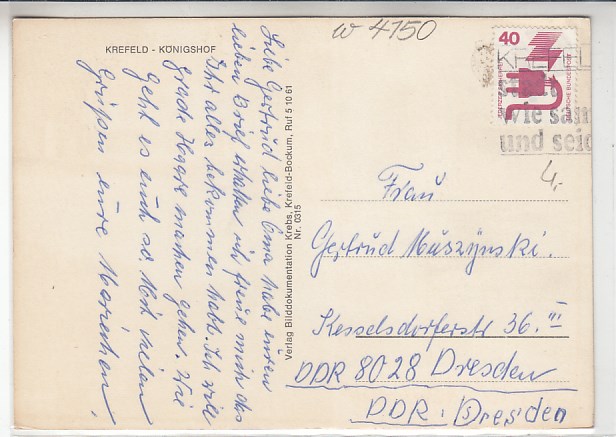 KREFELD - KÖNIGSHOF
w 4150
Liebe Gertrud liebe Oma habe euren
lieben Brief erhalten ich freue mich das
Ihr alles bekommen habt. Ich will
grade machen gehen. Wie
geht es euch so. Mit vielen
Grüßen eure Mariechen.
Verlag Bilddokumentation Krebs, Krefeld-Bockum, Ruf 5 10 61
Nr. 0315
40
DEUTSCHE BUNDESPOST
KREFELD
wie sam
und seid
4,-
Frau
Gertrud Muszynski.
Kesselsdorferstr 36. III
DDR 8028 Dresden
DDR : Dresden